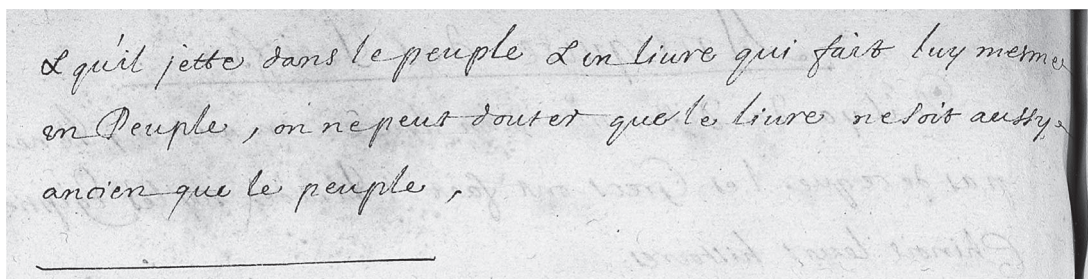 & qu'il jette dans le peuple & un liure qui fait luy mesme
un Peuple, on ne peut douter que le liure ne soit aussy
ancien que le peuple,